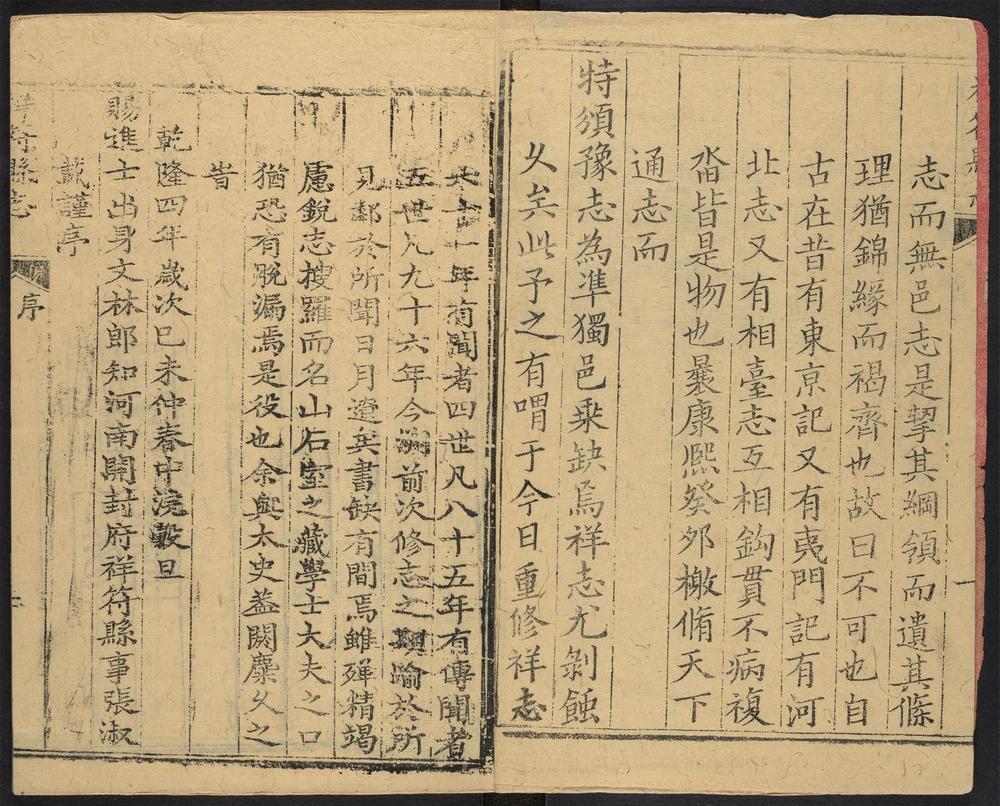 志而無邑志是挈其綱領而遺其條
理猶錦緣而褐齊也故曰不可也自
古在昔有東京記又有夷門記有河
北志又有相臺志互相鈎貫不病複
沓皆是物也曩康熙癸夘檄脩天下
通志而
特須豫志為準獨邑乗缺焉祥志尤剝蝕
乆矣此予之有喟于今日重修祥志
十一年有聞者四世凡八十五年有傳聞者
五世凡九十六年今前次修志之期喻於所
見鄰於所聞日月遼矣書缺有間焉雖殫精竭
慮銳志搜羅而名山石室之藏學士大夫之口
猶恐有脫漏焉是役也余與太史葢闕麋乆之
旹
乾隆四年歲次己未仲春中浣穀旦
賜進士出身文林郎知河南開封府祥符縣事張淑
載謹序
祥符縣志
序